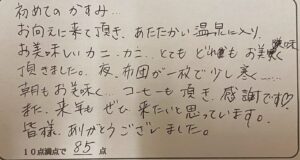 初めてのかすみ…
お向えに来て頂き、あたたかい温泉に入り、
お美味しいカニ、カニ、とても どれも お美味しく
頂きました。夜、布団が一枚で少し寒く……
朝もお美味しく、コーヒーも頂き、感謝です♡
また、来年も ぜひ 来たいと思っています。
皆様 ありがとうございました。
10点満点で 85 点